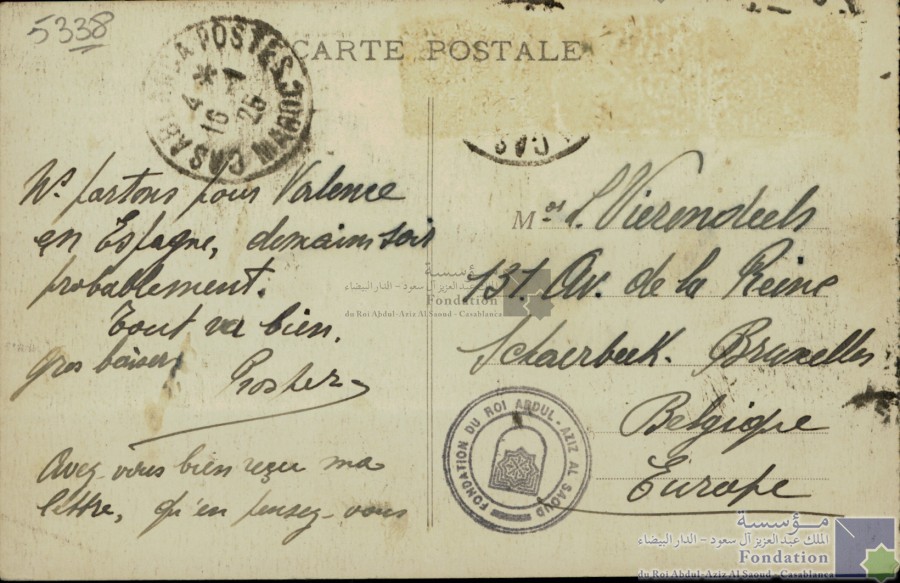 5338
CARTE POSTALE
CASABLANCA POSTES
* 1
4
16 25
MAROC
CAS
Ns partons pour Valence
en Espagne, demain soir
probablement.
Tout va bien.
Gros baisers
Prosper
Avez-vous bien reçu ma
lettre, qu'en pensez-vous
Mor L. Vierendeels
131 Av. de la Reine
Schaerbeek. Bruxelles
Belgique
Europe
FONDATION DU ROI ABDUL-AZIZ AL SAOUD
مؤسسة
الملك عبدالعزيز آل سعود - الدار البيضاء
Fondation
du Roi Abdul-Aziz Al Saoud - Casablanca
مؤسسة
الملك عبدالعزيز آل سعود - الدار البيضاء
Fondation
du Roi Abdul-Aziz Al Saoud - Casablanca